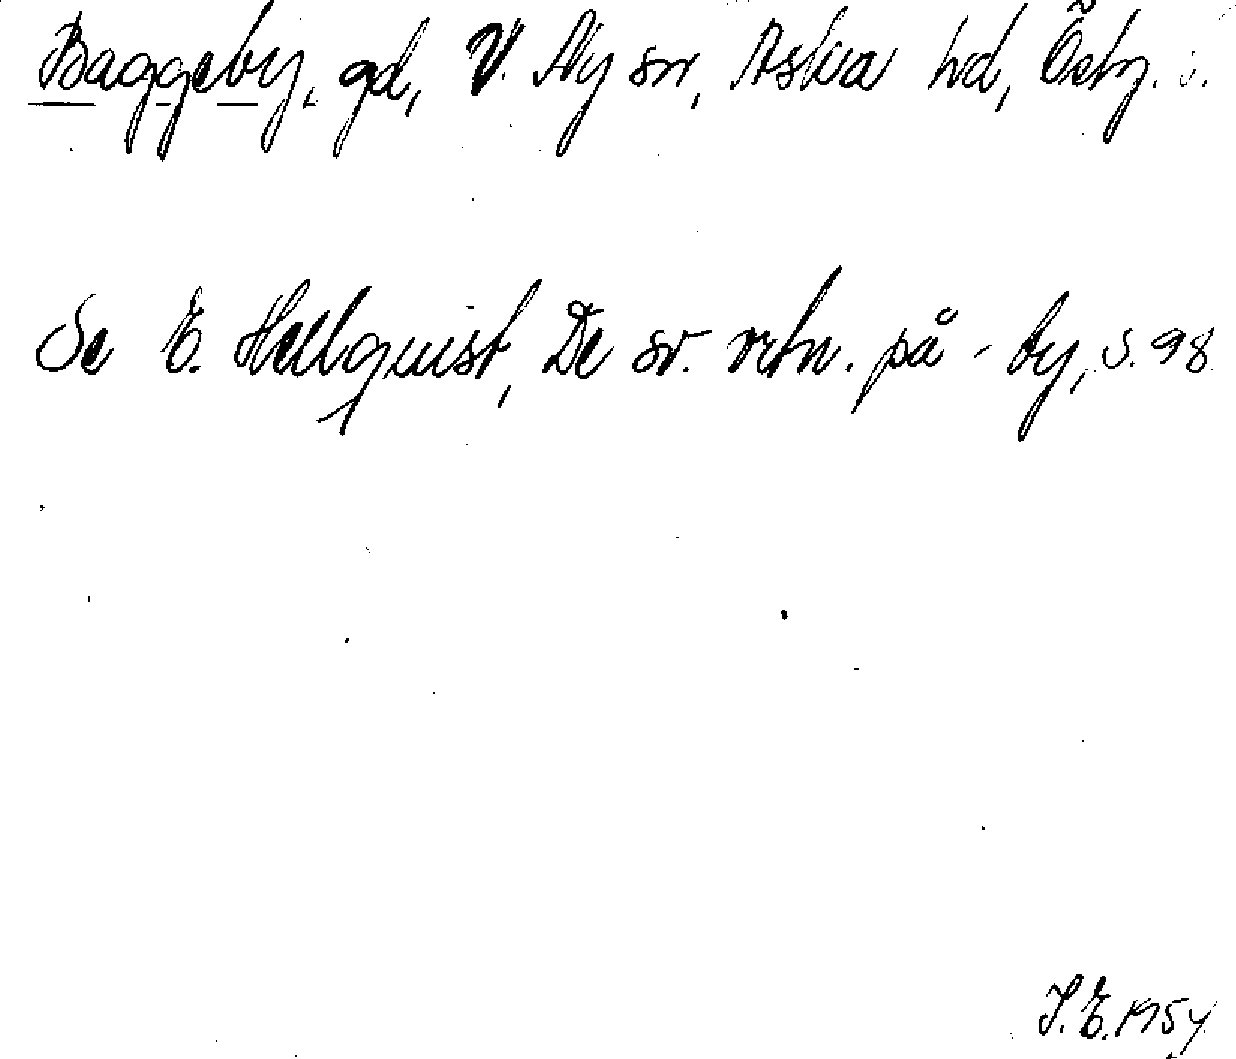 Baggeby, gd, V. Ny sn, Aska hd, Östg. l.
Se E. Hellquist, De sv. ortn. på -by, s. 98
I. E. 1954